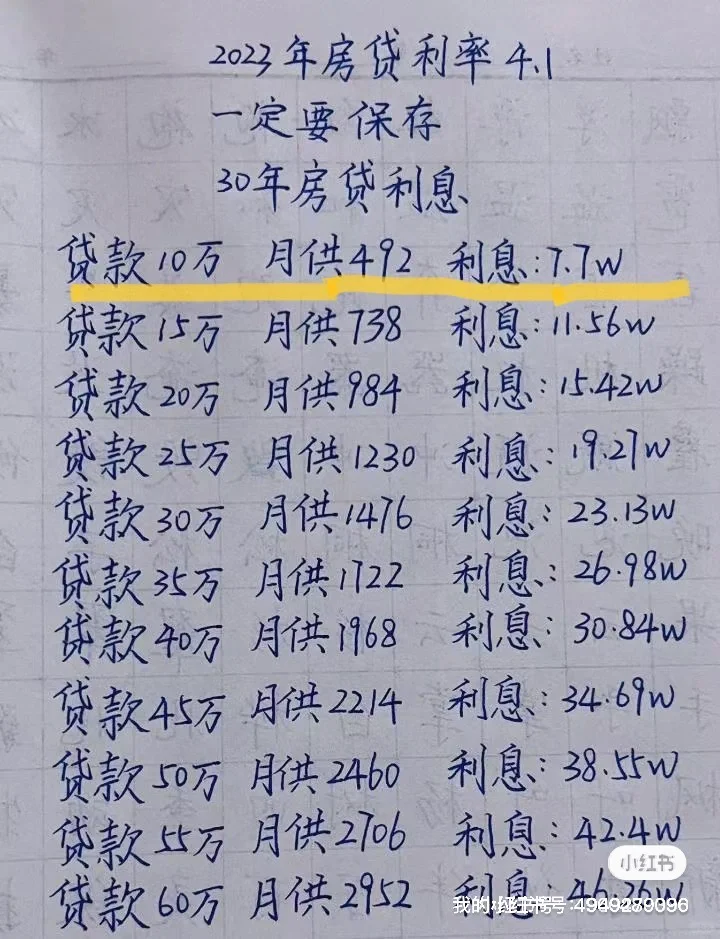 2023年房贷利率4.1
一定要保存
30年房贷利息
贷款10万 月供492 利息:7.7w
贷款15万 月供738 利息:11.56w
贷款20万 月供984 利息:15.42w
贷款25万 月供1230 利息:19.27w
贷款30万 月供1476 利息:23.13w
贷款35万 月供1722 利息:26.98w
贷款40万 月供1968 利息:30.84w
贷款45万 月供2214 利息:34.69w
贷款50万 月供2460 利息:38.55w
贷款55万 月供2706 利息:42.4w
小红书
贷款60万 月供2952 利息:46.26w